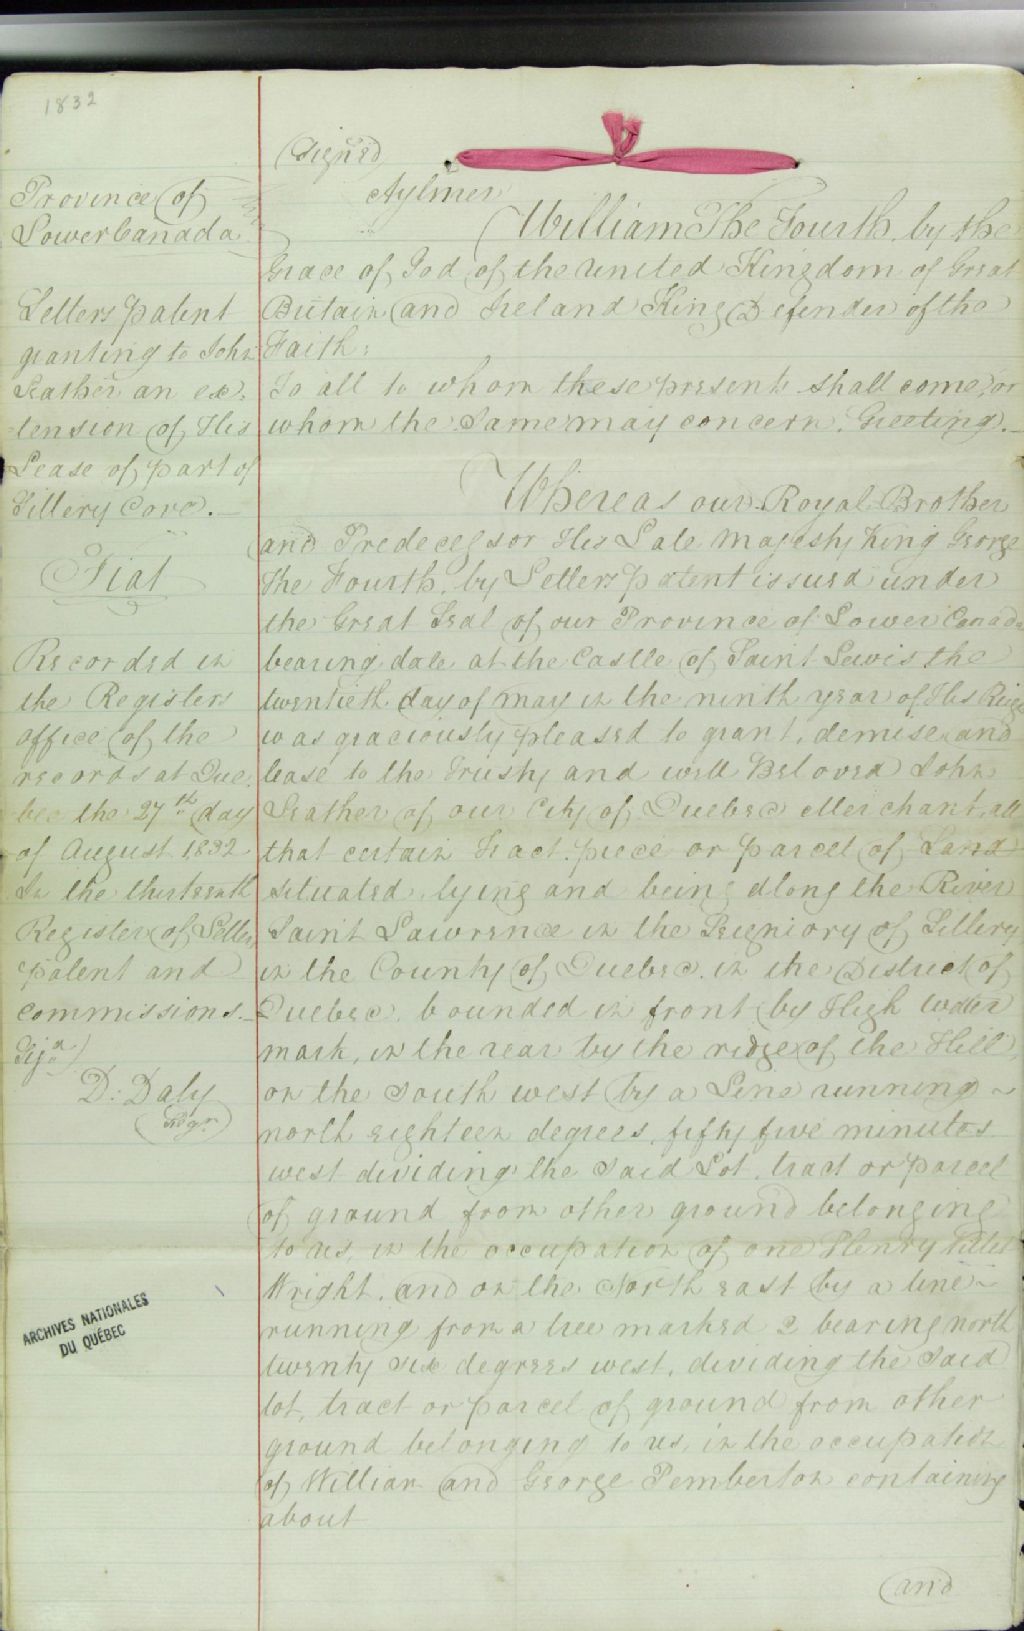 1832
(Signed)
Aylmer
Province of
Lower Canada
Letters patent
granting to John
Leather an ex-
tension of His
Lease of part of
Sillery Cove.
Fiat
Recorded in
the Registers
office of the
records at Que
bec the 27th day
of August 1832
In the thirteenth
Register of Letters
patent and
commissions.
Sig.d)
D. Daly
Regr.
ARCHIVES NATIONALES
DU QUÉBEC
William The Fourth, by the
Grace of God of the United Kingdom of Great
Britain and Ireland King Defender of the
Faith:
To all to whom these presents shall come, or
whom the Same may concern, Greeting.
Whereas our Royal Brother
and Predecessor His Late Majesty King George
the Fourth, by Letters patent issued under
the Great Seal of our Province of Lower Canada
bearing date at the Castle of Saint Lewis the
twentieth day of may in the ninth year of His Reign
was graciously pleased to grant, demise and
lease to the Trusty and well Beloved John
Leather of our City of Quebec Merchant, all
that certain Tract, piece or parcel of Land
situated, lying and being along the River
Saint Lawrence in the Seigniory of Sillery
in the County of Quebec, in the District of
Quebec, bounded in front by High water
mark, in the rear by the ridge of the Hill,
on the South west by a Line running
north eighteen degrees, fifty five minutes
west dividing the said Lot, tract or parcel
of ground from other ground belonging
to us, in the occupation of one Henry
Wright, and on the North east by a line
running from a tree marked 2 bearing north
twenty six degrees west, dividing the said
lot, tract or parcel of ground from other
ground belonging to us, in the occupation
of William and George Pemberton containing
about
and